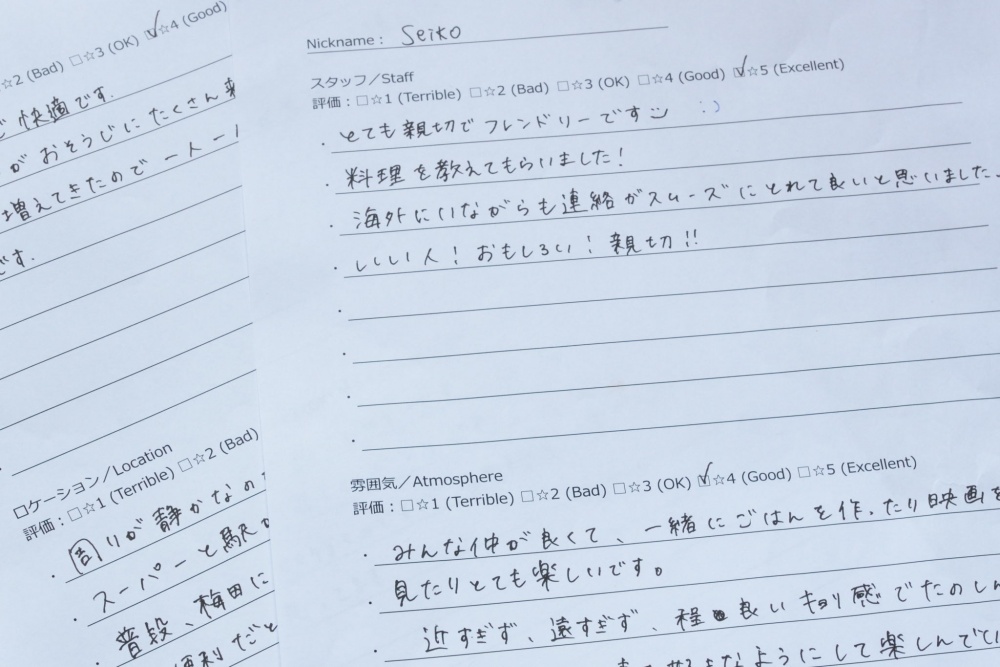 ☆2 (Bad) □☆3 (OK) ☑☆4 (Good)
快適です。
が おそうじに たくさん
増えてきたので 一人一人
です。
ロケーション／Location
評価：□☆1 (Terrible) □☆2 (Bad)
周りが 静かなの
スーパーと駅
普段、梅田に
便利だと
Nickname： Seiko
スタッフ／Staff
評価：□☆1 (Terrible) □☆2 (Bad) □☆3 (OK) □☆4 (Good) ☑☆5 (Excellent)
・とても 親切で フレンドリーです :)
・料理を教えてもらいました！
・海外にいながらも連絡がスムーズにとれて良いと思いました。
・いい人！おもしろい！親切!!
雰囲気／Atmosphere
評価：□☆1 (Terrible) □☆2 (Bad) □☆3 (OK) ☑☆4 (Good) □☆5 (Excellent)
・みんな仲が良くて、一緒にごはんを作ったり映画を
・見たりとても楽しいです。
・近すぎず、遠すぎず、程良い距離感でたのしん
ようにして楽しんでい